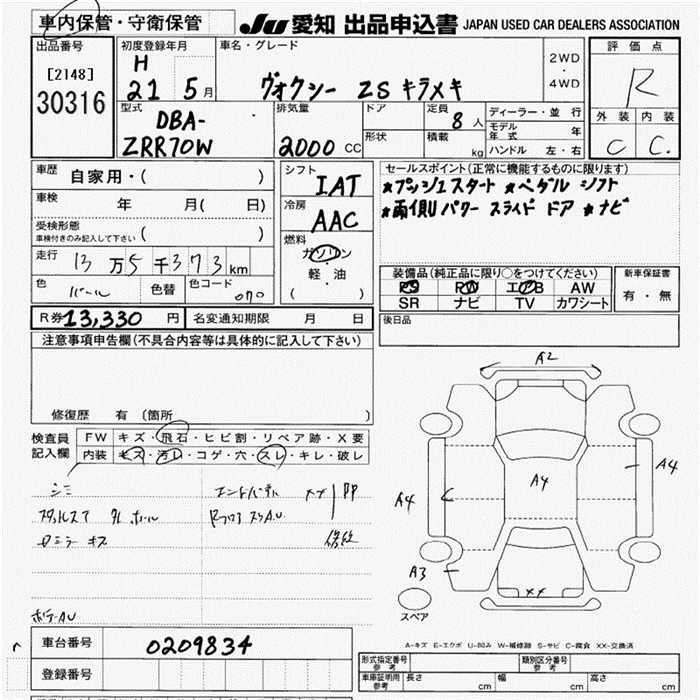 車内保管・守衛保管
JU 愛知 出品申込書 JAPAN USED CAR DEALERS ASSOCIATION
出品番号
[2148]
30316
初度登録年月
H
21 5 月
車名・グレード
ヴォクシー ZS キラメキ
2WD
・
4WD
評価点
R
外装 内装
C C.
型式
DBA-
ZRR70W
排気量
2000 CC
ドア
形状
定員
8 人
積載
kg
ディーラー・並行
モデル年式 年
ハンドル 左・右
車歴
自家用・( )
車検
年 月( 日)
受検形態
車検付きのみ記入して下さい ( )
走行
13 万 5 千 373 km
色
パール
色替
色コード
070
シフト
IAT
冷房
AAC
燃料
ガソリン
・
軽油
( )
セールスポイント(正常に機能するものに限ります)
★プッシュスタート ★ペダルシフト
★両側Uパワースライドドア ★ナビ
装備品(純正品に限り○をつけてください)
PS PW エアB AW
SR ナビ TV カワシート
新車保証書
有・無
R券 13,330 円
名変通知期限 月 日
後日品
注意事項申告欄(不具合内容等は具体的に記入して下さい)
修復歴 有 〔箇所 〕
検査員
記入欄
FW キズ・飛石・ヒビ割・リペア跡・X要
内装 キズ・汚レ・コゲ・穴・スレ・キレ・破レ
シミ
エンドパネル XX
Rフロア スアA.U.
キズ
ボデーAU
A2
A4
A4
A4
A3
XX
スペア
A-キズ E-エクボ U-凹み W-補修跡 S-サビ C-腐食 XX-交換済
車台番号
0209834
登録番号
形式指定番号
参考
類別区分番号
参考
車庫証明用
参考
長さ cm
幅 cm
高さ cm